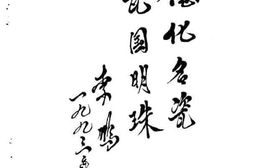 德化名瓷
瓷国明珠
李鹏
一九九三